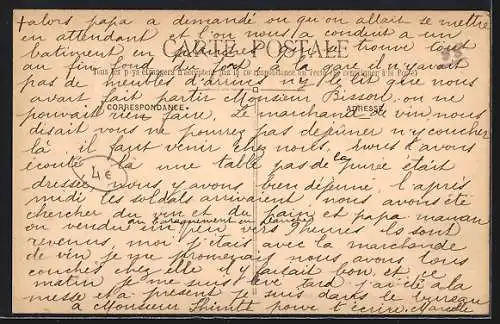 +alors papa a demandé ou qu'on allait se mettre
en attendant et l'on nous a conduit a un
batiment en planches qui se trouve tout
CARTE POSTALE
au fin fond du fort, à la gare il n'y avait
Tous les pays étrangers n'acceptent pas la correspondance au recto (se renseigner à la Poste)
pas de meubles d'arrivés ni le lit que nous
avait fait partir Monsieur Bisson, on ne
CORRESPONDANCE ADRESSE
pouvait rien faire. Le marchand de vin nous
disait vous ne pourrez pas déjeuner n'y coucher
là, il faut venir chez nous. nous l'avons
écouté là une table pas de la purée était
4 €
dressée nous y avons bien déjeuné. l'après
midi les soldats arrivaient nous avons été
chercher du vin et du pain et papa maman
au baraquement en planches
ou vendu un peu vers heures ils sont
revenus, moi j'étais avec la marchande
de vin, je me promenais nous avons tous
couchés chez elle il y faisait bon, et ce
matin je me suis levé tard j'ai été à la
messe et a present je suis dans le bureau
a Monsieur pour t'écrire. Marcelle